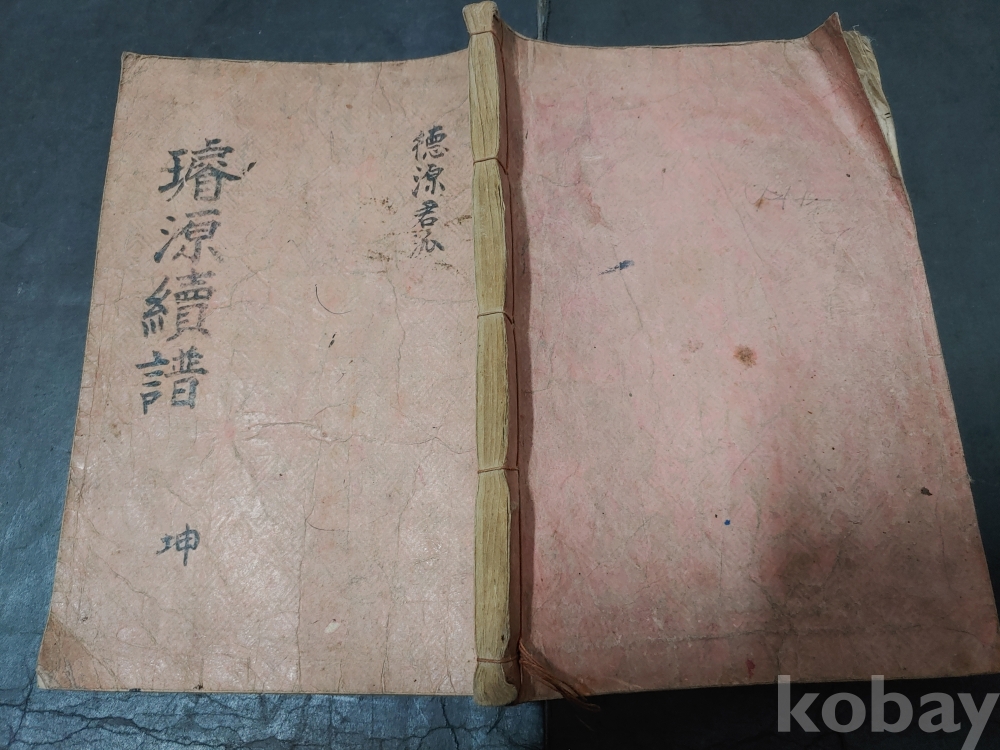 德源君派
璿源續譜
坤
kobay